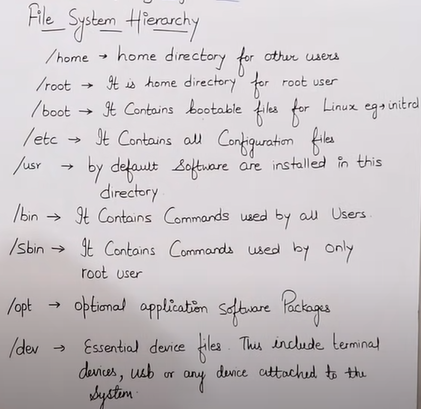 File System Hierarchy
/home → home directory for other users
/root → It is home directory for root user
/boot → It Contains bootable files for Linux eg → initrd
/etc → It Contains all Configuration files
/usr → by default Software are installed in this
directory
/bin → It Contains Commands used by all Users.
/Sbin → It Contains Commands used by only
root user
/opt → optional application Software Packages
/dev → Essential device files. This include terminal
devices, usb or any device attached to the
System.